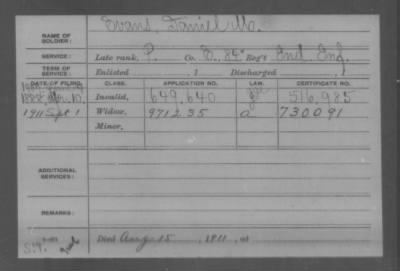 NAME OF SOLDIER: Evans, Daniel W.
SERVICE: Late rank, P. Co. B, 84" Reg't Ind. Inf.
TERM OF SERVICE: Enlisted , 1 Discharged , 1
DATE OF FILING. CLASS. APPLICATION NO. LAW. CERTIFICATE NO.
1888 Apr. 10. Invalid, 649,640 516,985
1911 Sept 1 Widow, 971235 a 730091
Minor,
ADDITIONAL SERVICES:
REMARKS:
Died Aug 15, 1911, at